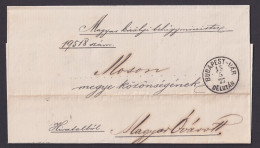 Magyar királyi belügyminister
19518 szám.
Moson
megye közönségének
BUDAPEST-VÁR
DÉLUTÁN
Hivatalból
Magyar Óvárott